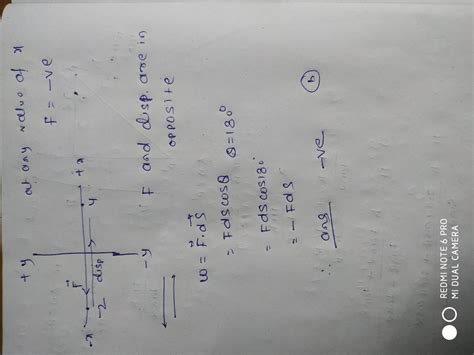 at any value of x
F = -ve
+y
-x
-2
F
disp
4
+x
-y
F and disp. are in
opposite
W = F.ds
= Fdscosθ θ=180°
= Fdscos180°
= -Fds
∴ ans -ve (b)
REDMI NOTE 6 PRO
MI DUAL CAMERA